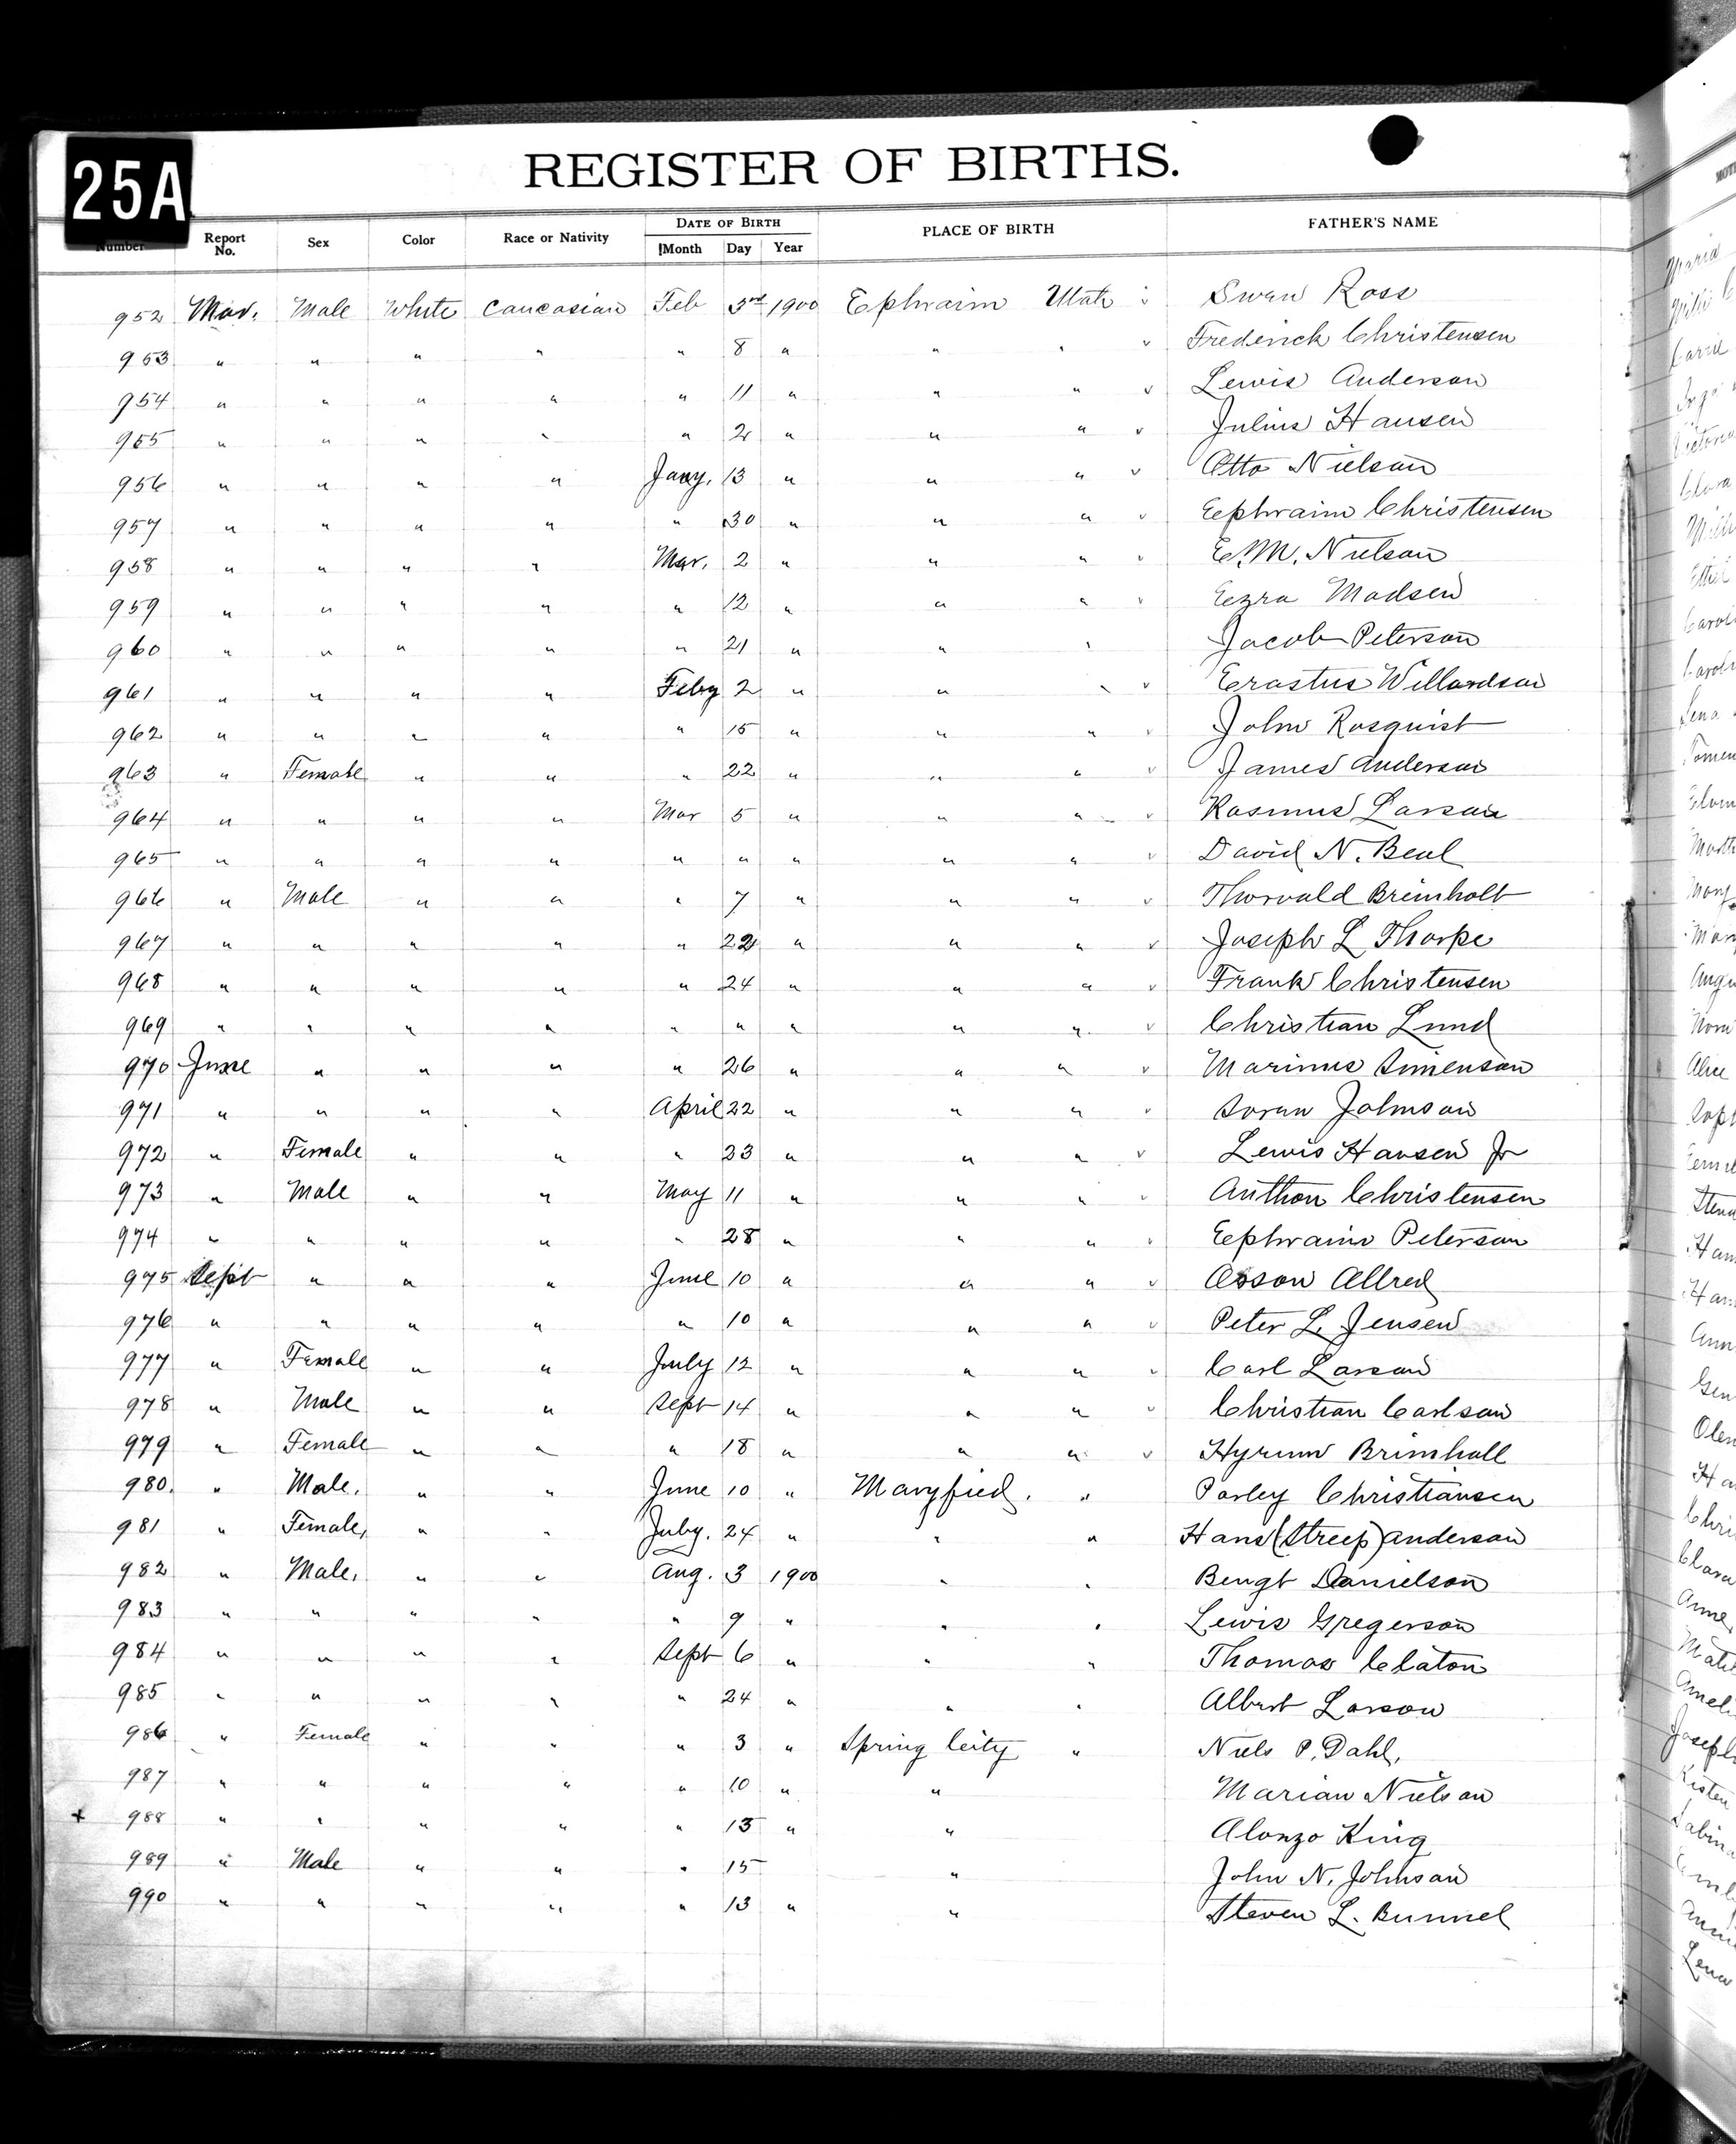 25A
REGISTER OF BIRTHS.
Number Report No. Sex Color Race or Nativity DATE OF BIRTH Month Day Year PLACE OF BIRTH FATHER'S NAME
952 Mar. Male White Caucasian Feb 3rd 1900 Ephraim Utah v Swen Ross
953 " " " " " 8 " " " v Frederick Christensen
954 " " " " " 11 " " " v Lewis Anderson
955 " " " " " 2 " " " v Julius Hansen
956 " " " " Jany. 13 " " " v Otto Nielson
957 " " " " " 30 " " " v Eephraim Christensen
958 " " " " Mar. 2 " " " v E. M. Nielson
959 " " " " " 12 " " " v Ezra Madsen
960 " " " " " 21 " " " Jacob Peterson
961 " " " " Feby 2 " " " v Erastus Willardson
962 " " " " " 15 " " " v John Rosquist
963 " Female " " " 22 " " " v James Anderson
964 " " " " Mar 5 " " " v Rasmus Larson
965 " " " " " " " " " v David N. Beal
966 " Male " " " 7 " " " v Thorvald Breinholt
967 " " " " " 22 " " " v Joseph L Thorpe
968 " " " " " 24 " " " v Frank Christensen
969 " " " " " " " " " v Christian Lund
970 June " " " " 26 " " " v Marinus Simenson
971 " " " " April 22 " " " v Soren Johnson
972 " Female " " " 23 " " " v Lewis Hansen Jr
973 " Male " " May 11 " " " v Anthon Christensen
974 " " " " " 28 " " " v Eephraim Peterson
975 Sept " " " June 10 " " " v Osson Allred
976 " " " " " 10 " " " v Peter L. Jensen
977 " Female " " July 12 " " " v Carl Larson
978 " Male " " Sept 14 " " " v Christian Carlson
979 " Female " " " 18 " " " v Hyrum Brimhall
980. " Male. " " June 10 " Maryfied. " Parley Christiansen
981 " Female, " " July. 24 " " " Hans (Streep) Anderson
982 " Male. " " Aug. 3 1900 " " Bengt Danielson
983 " " " " " 9 " " " Lewis Gregerson
984 " " " " Sept 6 " " " Thomas Claton
985 " " " " " 24 " " " Albert Larson
986 " Female " " " 3 " Spring City " Niels P. Dahl.
987 " " " " " 10 " " Marian Nielson
+ 988 " " " " " 13 " " Alonzo King
989 " Male " " " 15 " John N. Johnson
990 " " " " " 13 " " Steven L. Bunnel